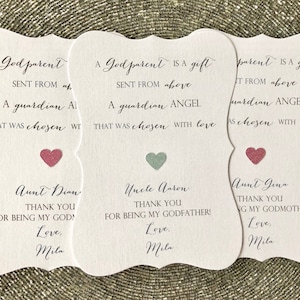 A Godparent IS A gift
SENT FROM above
A guardian ANGEL
THAT WAS chosen WITH love
Aunt Dian
THANK YOU
FOR BEING MY GODM
Love,
Mila
A Godparent IS A gift
SENT FROM above
A guardian ANGEL
THAT WAS chosen WITH love
Uncle Aaron
THANK YOU
FOR BEING MY GODFATHER!
Love,
Mila
IS A gift
above
ANGEL
WITH love
Aunt Gina
THANK YOU
MY GODMOTH
Love,
Mila